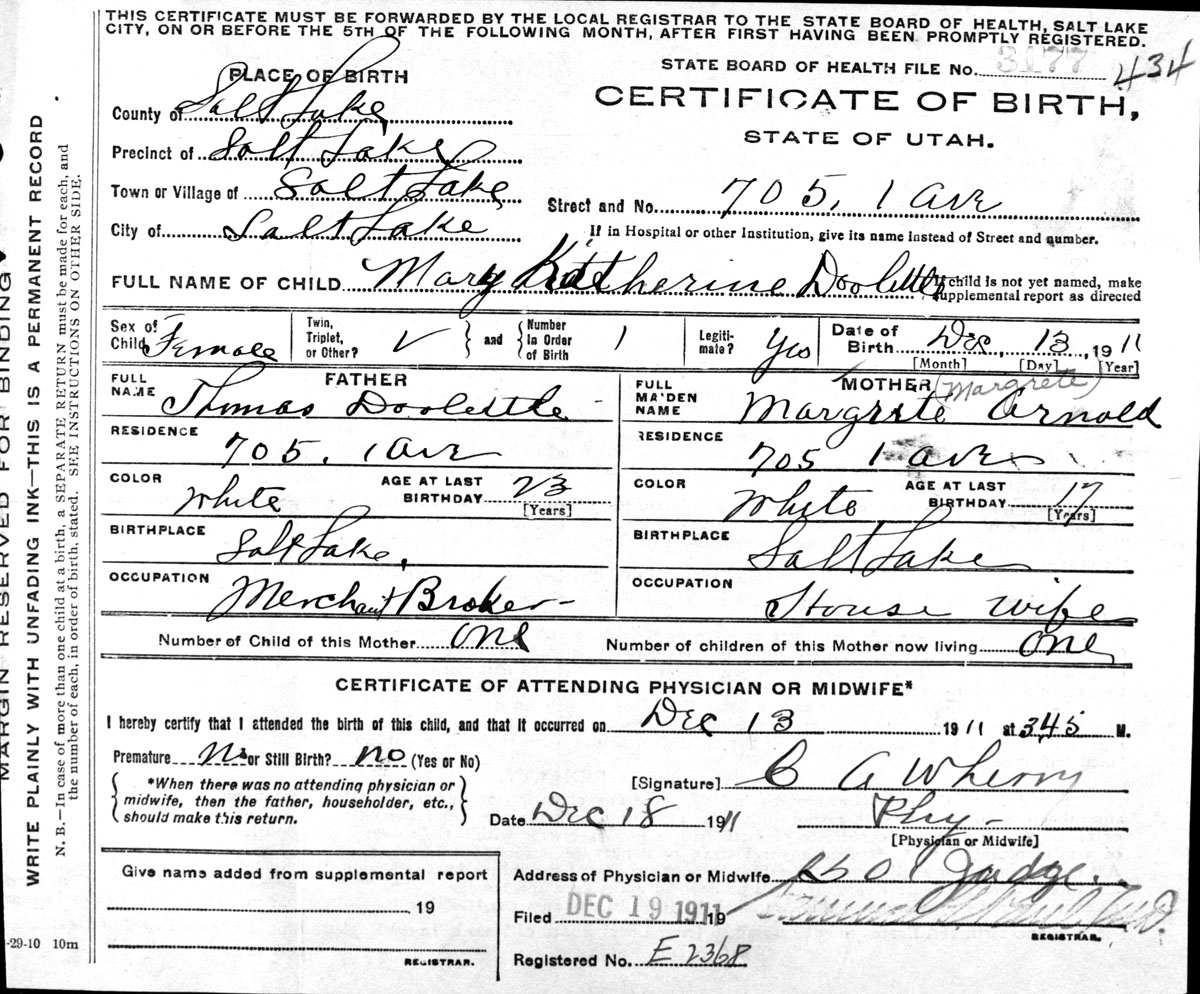 THIS CERTIFICATE MUST BE FORWARDED BY THE LOCAL REGISTRAR TO THE STATE BOARD OF HEALTH, SALT LAKE
CITY, ON OR BEFORE THE 5TH OF THE FOLLOWING MONTH, AFTER FIRST HAVING BEEN PROMPTLY REGISTERED.
STATE BOARD OF HEALTH FILE No. 3177 434
PLACE OF BIRTH
CERTIFICATE OF BIRTH,
STATE OF UTAH.
County of Salt Lake
Precinct of Salt Lake
Town or Village of Salt Lake
Street and No. 705, 1 Ave
City of Salt Lake
If in Hospital or other Institution, give its name instead of Street and number.
FULL NAME OF CHILD Mary Katherine Doolittle
If child is not yet named, make
supplemental report as directed
Sex of Child Female
Twin, Triplet, or Other? V
and
Number In Order of Birth 1
Legitimate? Yes
Date of Birth Dec, 13, 1911
[Month] [Day] [Year]
FATHER
FULL NAME Thomas Doolittle
RESIDENCE 705, 1 Ave
COLOR White
AGE AT LAST BIRTHDAY 23
[Years]
BIRTHPLACE Salt Lake,
OCCUPATION Merchant Broker
MOTHER (Margrete)
FULL MAIDEN NAME Margrete Arnold
RESIDENCE 705 1 Ave
COLOR White
AGE AT LAST BIRTHDAY 17
[Years]
BIRTHPLACE Salt Lake
OCCUPATION House wife
Number of Child of this Mother One
Number of children of this Mother now living One
CERTIFICATE OF ATTENDING PHYSICIAN OR MIDWIFE*
I hereby certify that I attended the birth of this child, and that it occurred on Dec 13 1911 at 345 M.
Premature No or Still Birth? no (Yes or No)
*When there was no attending physician or
midwife, then the father, householder, etc.,
should make this return.
[Signature] C A Wherry
Date Dec 18 1911
Phy-
[Physician or Midwife]
Address of Physician or Midwife Judge
Give name added from supplemental report
19
REGISTRAR.
Filed DEC 19 1911 19
M.D.
REGISTRAR.
Registered No. E 2368
-29-10 10m
MARGIN RESERVED FOR BINDING
WRITE PLAINLY WITH UNFADING INK—THIS IS A PERMANENT RECORD
N. B.—In case of more than one child at a birth, a SEPARATE RETURN must be made for each, and
the number of each, in order of birth, stated. SEE INSTRUCTIONS ON OTHER SIDE.